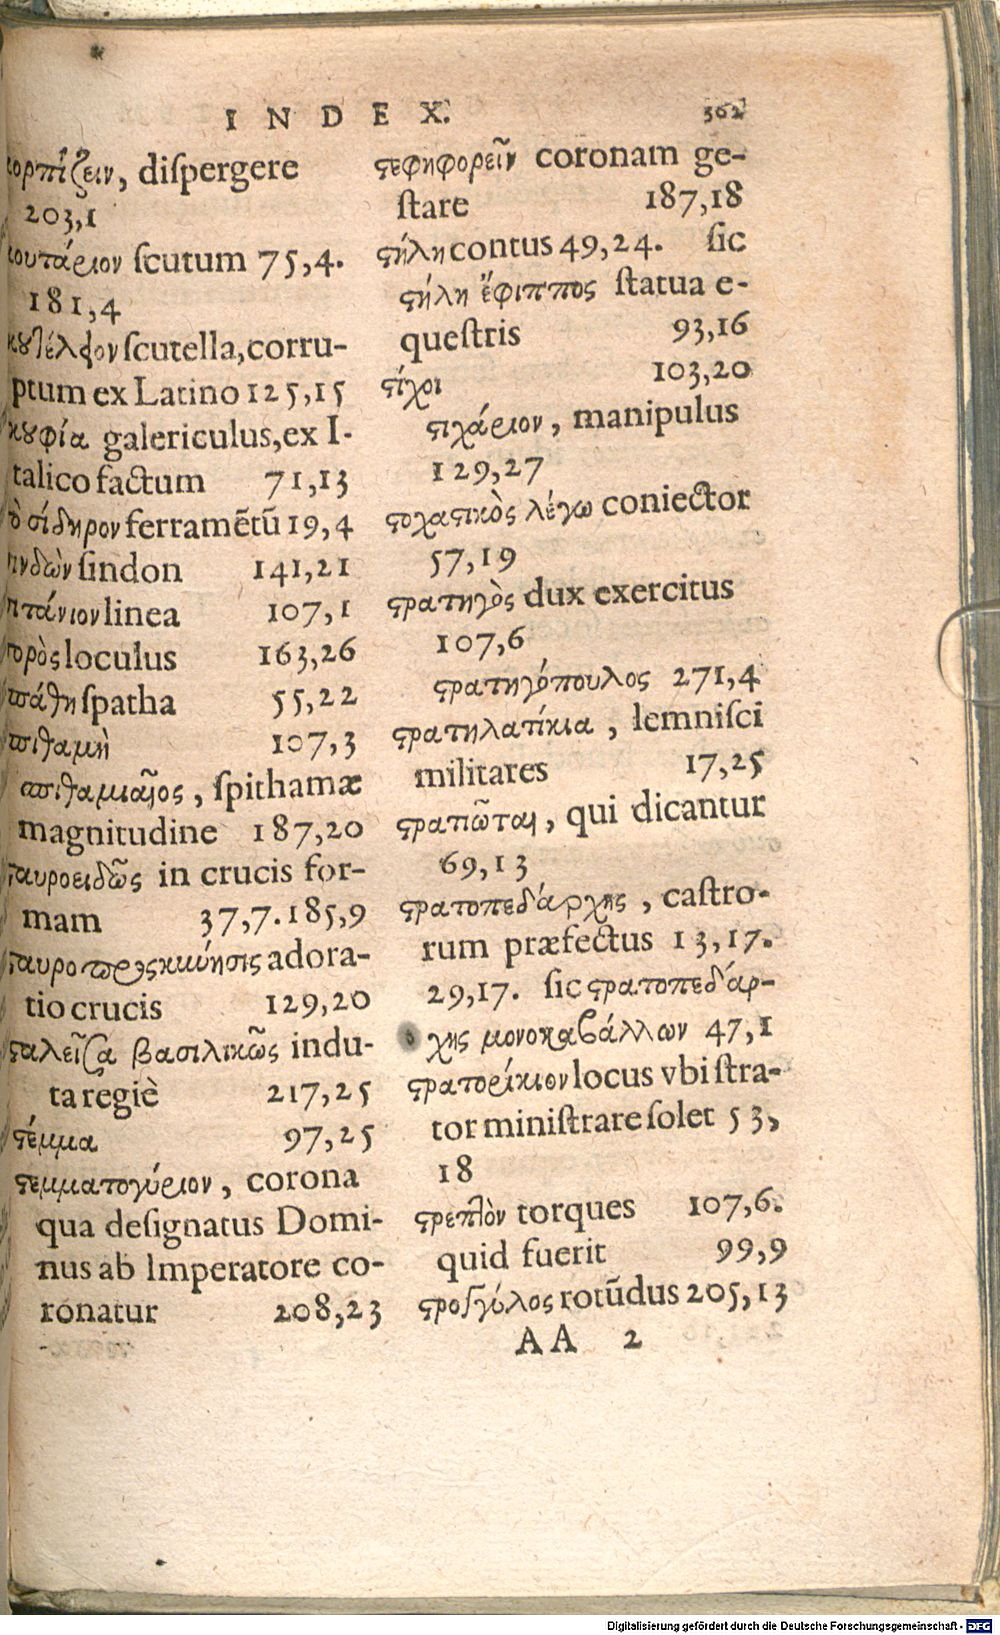 INDEX. 362
κορπίζειν, diſpergere
203,1
κουτάριον ſcutum 75,4.
181,4
κουτέλλον ſcutella, corru-
ptum ex Latino 125,15
κουφία galericulus, ex I-
talico factum 71,13
τὸ σίδηρον ferramētū 19,4
ινδὼν ſindon 141,21
πτάνιον linea 107,1
ορὸς loculus 163,26
πάθη ſpatha 55,22
πιθαμὴ 107,3
σπιθαμιαῖος, ſpithamæ
magnitudine 187,20
ταυροειδῶς in crucis for-
mam 37,7. 185,9
ταυροπροςκωύησις adora-
tio crucis 129,20
σταλεῖσα βασιλικῶς indu-
ta regiè 217,25
στέμμα 97,25
στεμματογύριον, corona
qua deſignatus Domi-
nus ab Imperatore co-
ronatur 208,23
στεφηφορεῖν coronam ge-
ſtare 187,18
στήλη contus 49,24. ſic
στήλη ἔφιππος ſtatua e-
queſtris 93,16
στίχοι 103,20
στιχάριον, manipulus
129,27
στοχαστικὸς λέγω coniector
57,19
στρατηγὸς dux exercitus
107,6
στρατηγόπουλος 271,4
στρατηλατίκια, lemniſci
militares 17,25
στρατιῶται, qui dicantur
69,13
στρατοπεδάρχης, caſtro-
rum præfectus 13,17.
29,17. ſic στρατοπεδάρ-
χης μονοκαβάλλων 47,1
στρατορίκιον locus vbi ſtra-
tor miniſtrare ſolet 53,
18
στρεπτὸν torques 107,6.
quid fuerit 99,9
στρογγύλος rotūdus 205,13
AA 2
Digitalisierung gefördert durch die Deutsche Forschungsgemeinschaft - DFG